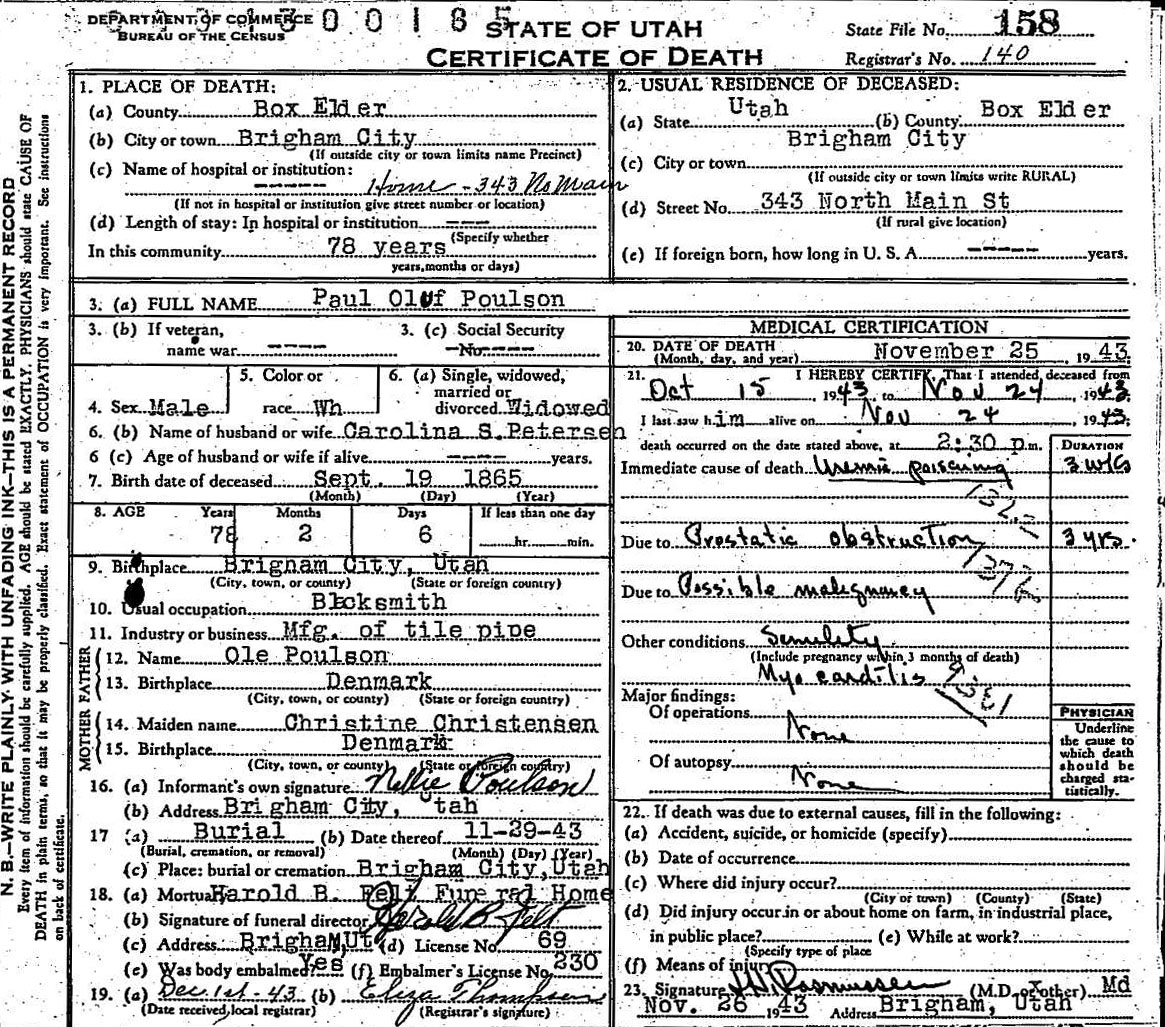 DEPARTMENT OF COMMERCE
BUREAU OF THE CENSUS
0 0 1 6 5
STATE OF UTAH
CERTIFICATE OF DEATH
State File No. 158
Registrar's No. 140
N. B.—WRITE PLAINLY WITH UNFADING INK—THIS IS A PERMANENT RECORD
Every item of information should be carefully supplied. AGE should be stated EXACTLY. PHYSICIANS should state CAUSE OF
DEATH in plain terms, so that it may be properly classified. Exact statement of OCCUPATION is very important. See instructions
on back of certificate.
1. PLACE OF DEATH:
(a) County Box Elder
(b) City or town Brigham City
(If outside city or town limits name Precinct)
(c) Name of hospital or institution:
----- Home - 343 No Main
(If not in hospital or institution give street number or location)
(d) Length of stay: In hospital or institution ---
(Specify whether
In this community 78 years
years, months or days)
2. USUAL RESIDENCE OF DECEASED:
(a) State Utah (b) County Box Elder
Brigham City
(c) City or town
(If outside city or town limits write RURAL)
(d) Street No. 343 North Main St
(If rural give location)
(e) If foreign born, how long in U. S. A. ----- years.
3. (a) FULL NAME Paul Oluf Poulson
3. (b) If veteran, name war ----
3. (c) Social Security No. ----
4. Sex Male
5. Color or race Wh
6. (a) Single, widowed, married or divorced Widowed
6. (b) Name of husband or wife Carolina S. Petersen
6 (c) Age of husband or wife if alive ---- years.
7. Birth date of deceased Sept. 19 1865
(Month) (Day) (Year)
8. AGE Years Months Days If less than one day
78 2 6 hr. min.
9. Birthplace Brigham City, Utah
(City, town, or county) (State or foreign country)
10. Usual occupation Blcksmith
11. Industry or business Mfg. of tile pipe
FATHER
12. Name Ole Poulson
13. Birthplace Denmark
(City, town, or county) (State or foreign country)
MOTHER
14. Maiden name Christine Christensen
15. Birthplace Denmark
(City, town, or county) (State or foreign country)
16. (a) Informant's own signature Nellie Poulson
(b) Address Brigham City, Utah
17 (a) Burial (b) Date thereof 11-29-43
(Burial, cremation, or removal) (Month) (Day) (Year)
(c) Place: burial or cremation Brigham City, Utah
18. (a) Mortuary Harold B. Felt Funeral Home
(b) Signature of funeral director Harold B Felt
(c) Address Brigham, Ut (d) License No. 69
(e) Was body embalmed? Yes (f) Embalmer's License No. 230
19. (a) Dec. 1st - 43 (b) Eliza Thompson
(Date received local registrar) (Registrar's signature)
MEDICAL CERTIFICATION
20. DATE OF DEATH
(Month, day, and year) November 25, 1943
21. I HEREBY CERTIFY, That I attended, deceased from
Oct 15 1943, to Nov 24 1943.
I last saw him alive on Nov 24, 1943.
death occurred on the date stated above, at 2:30 p.m. DURATION
Immediate cause of death Uremic poisoning 3 wks
132.2
Due to Prostatic obstruction 3 yrs.
Due to Possible malignancy
Other conditions Senility
(Include pregnancy within 3 months of death)
Myocarditis
Major findings:
Of operations None
Of autopsy None
PHYSICIAN
Underline
the cause to
which death
should be
charged sta-
tistically.
22. If death was due to external causes, fill in the following:
(a) Accident, suicide, or homicide (specify)
(b) Date of occurrence
(c) Where did injury occur?
(City or town) (County) (State)
(d) Did injury occur in or about home on farm, in industrial place,
in public place? (e) While at work?
(Specify type of place
(f) Means of injury
23. Signature Rasmussen (M.D. or other) Md
Nov. 26 1943 Address Brigham, Utah